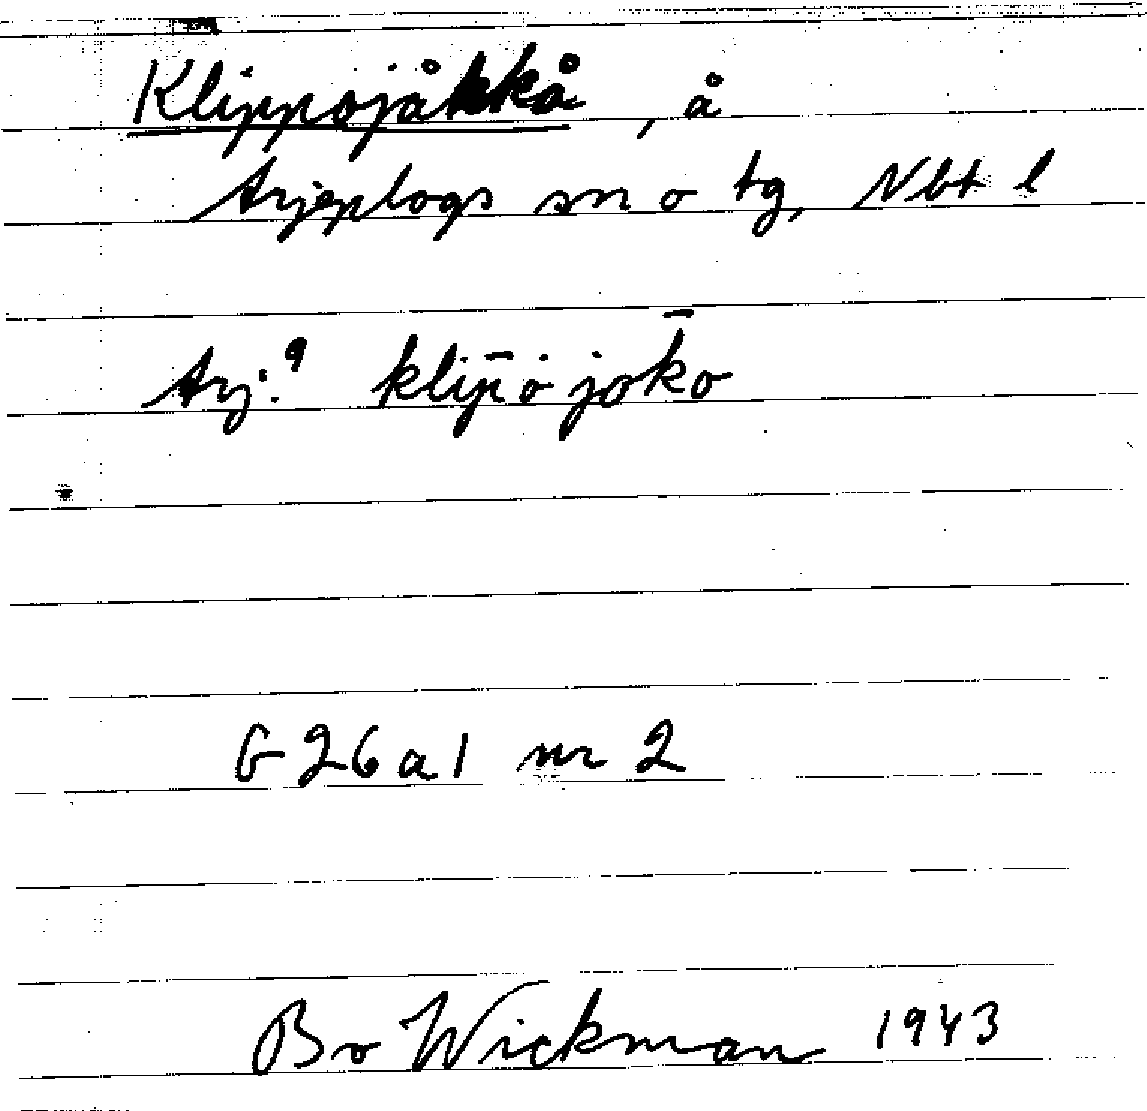 Klippojåkkå, å
Arjeplogs sn o tg, Nbt l
Arj:
G 26 a 1 nr 2
Bo Wickman 1943